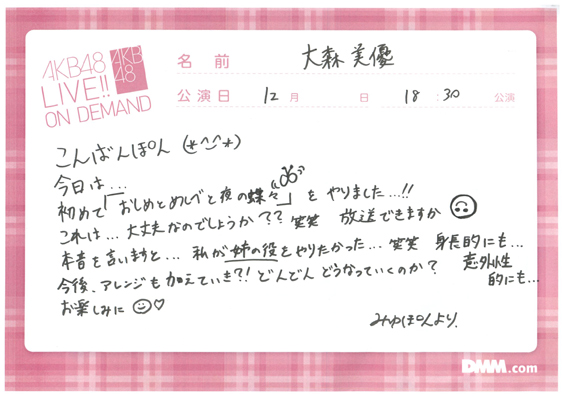 AKB48
LIVE!!
ON DEMAND
AKB
48
名前 大森美優
公演日 12月 日 18:30 公演
こんばんぽん (*^^*)
今日は...
初めて「おしめとめしべと夜の蝶々」を やりました...!!
これは... 大丈夫なのでしょうか?? 笑笑 放送できますか
本音を言いますと... 私が姉の役をやりたかった... 笑笑 身長的にも... 意外性的にも...
今後、アレンジも加えていき?! どんどん どうなっていくのか?
お楽しみに
みゆぽんより.
DMM.com